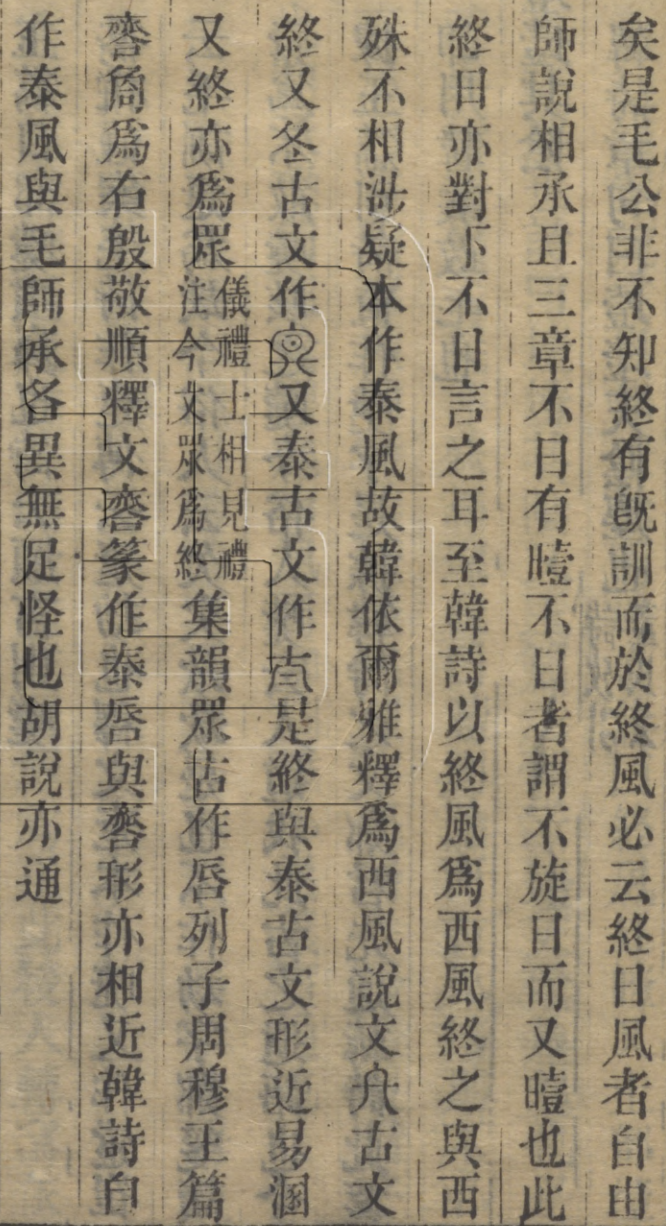 矣是毛公非不知終有既訓而於終風必云終日風者自由
師說相承且三章不日有曀不日者謂不旋日而又曀也此
終日亦對下不日言之耳至韓詩以終風爲西風終之與西
殊不相涉疑本作泰風故韓依爾雅釋爲西風說文𠂂古文
終又冬古文作又泰古文作是終與泰古文形近易溷
又終亦爲眾儀禮士相見禮注今文眾爲終集韻眾古作㫳列子周穆王篇
爲右殷敬順釋文篆作泰㫳與形亦相近韓詩自
作泰風與毛師承各異無足怪也胡說亦通